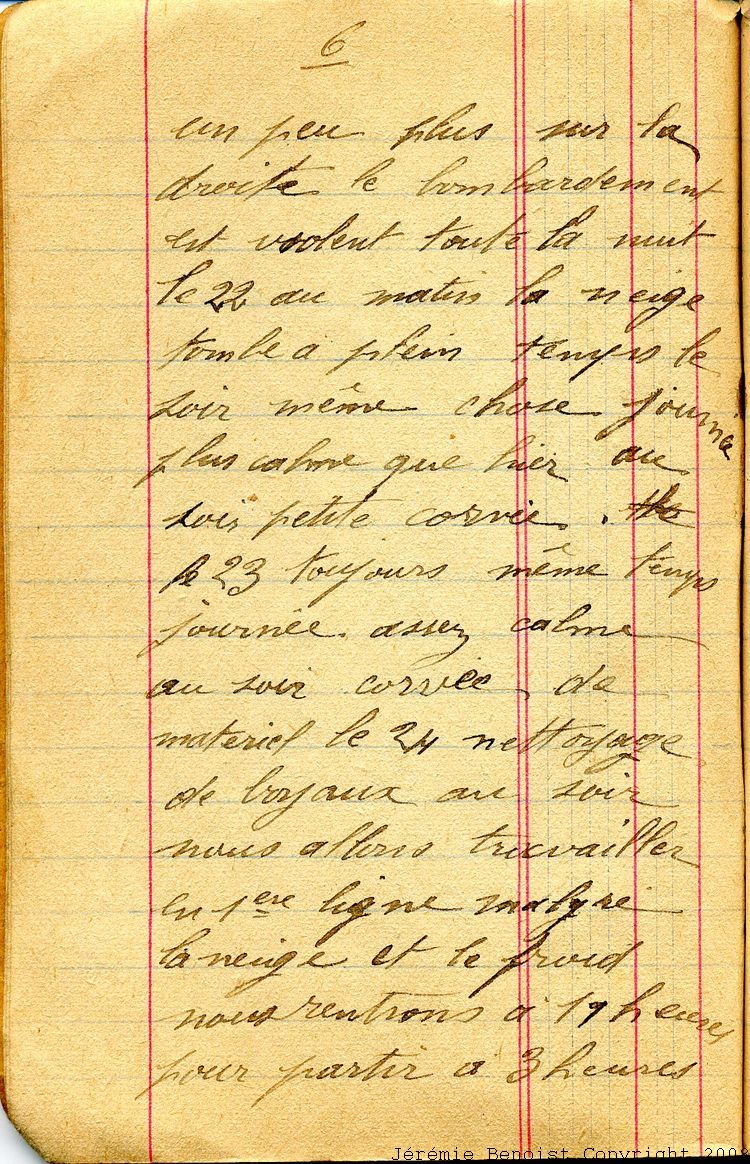 6
un peu plus sur la
droite le bombardement
est violent toute la nuit
le 22 au matin la neige
tombe a plein temps le
soir même chose journée
plus calme que hier au
soir petite corvée.
le 23 toujours même temps
journée. assez calme
au soir corvée de
materiel le 24 nettoyage
de boyaux au soir
nous allons travailler
en 1ere ligne malgré
la neige et le froid
nous rentrons a 19 heures
pour partir a 3 heures
Jérémie Benoist Copyright 200